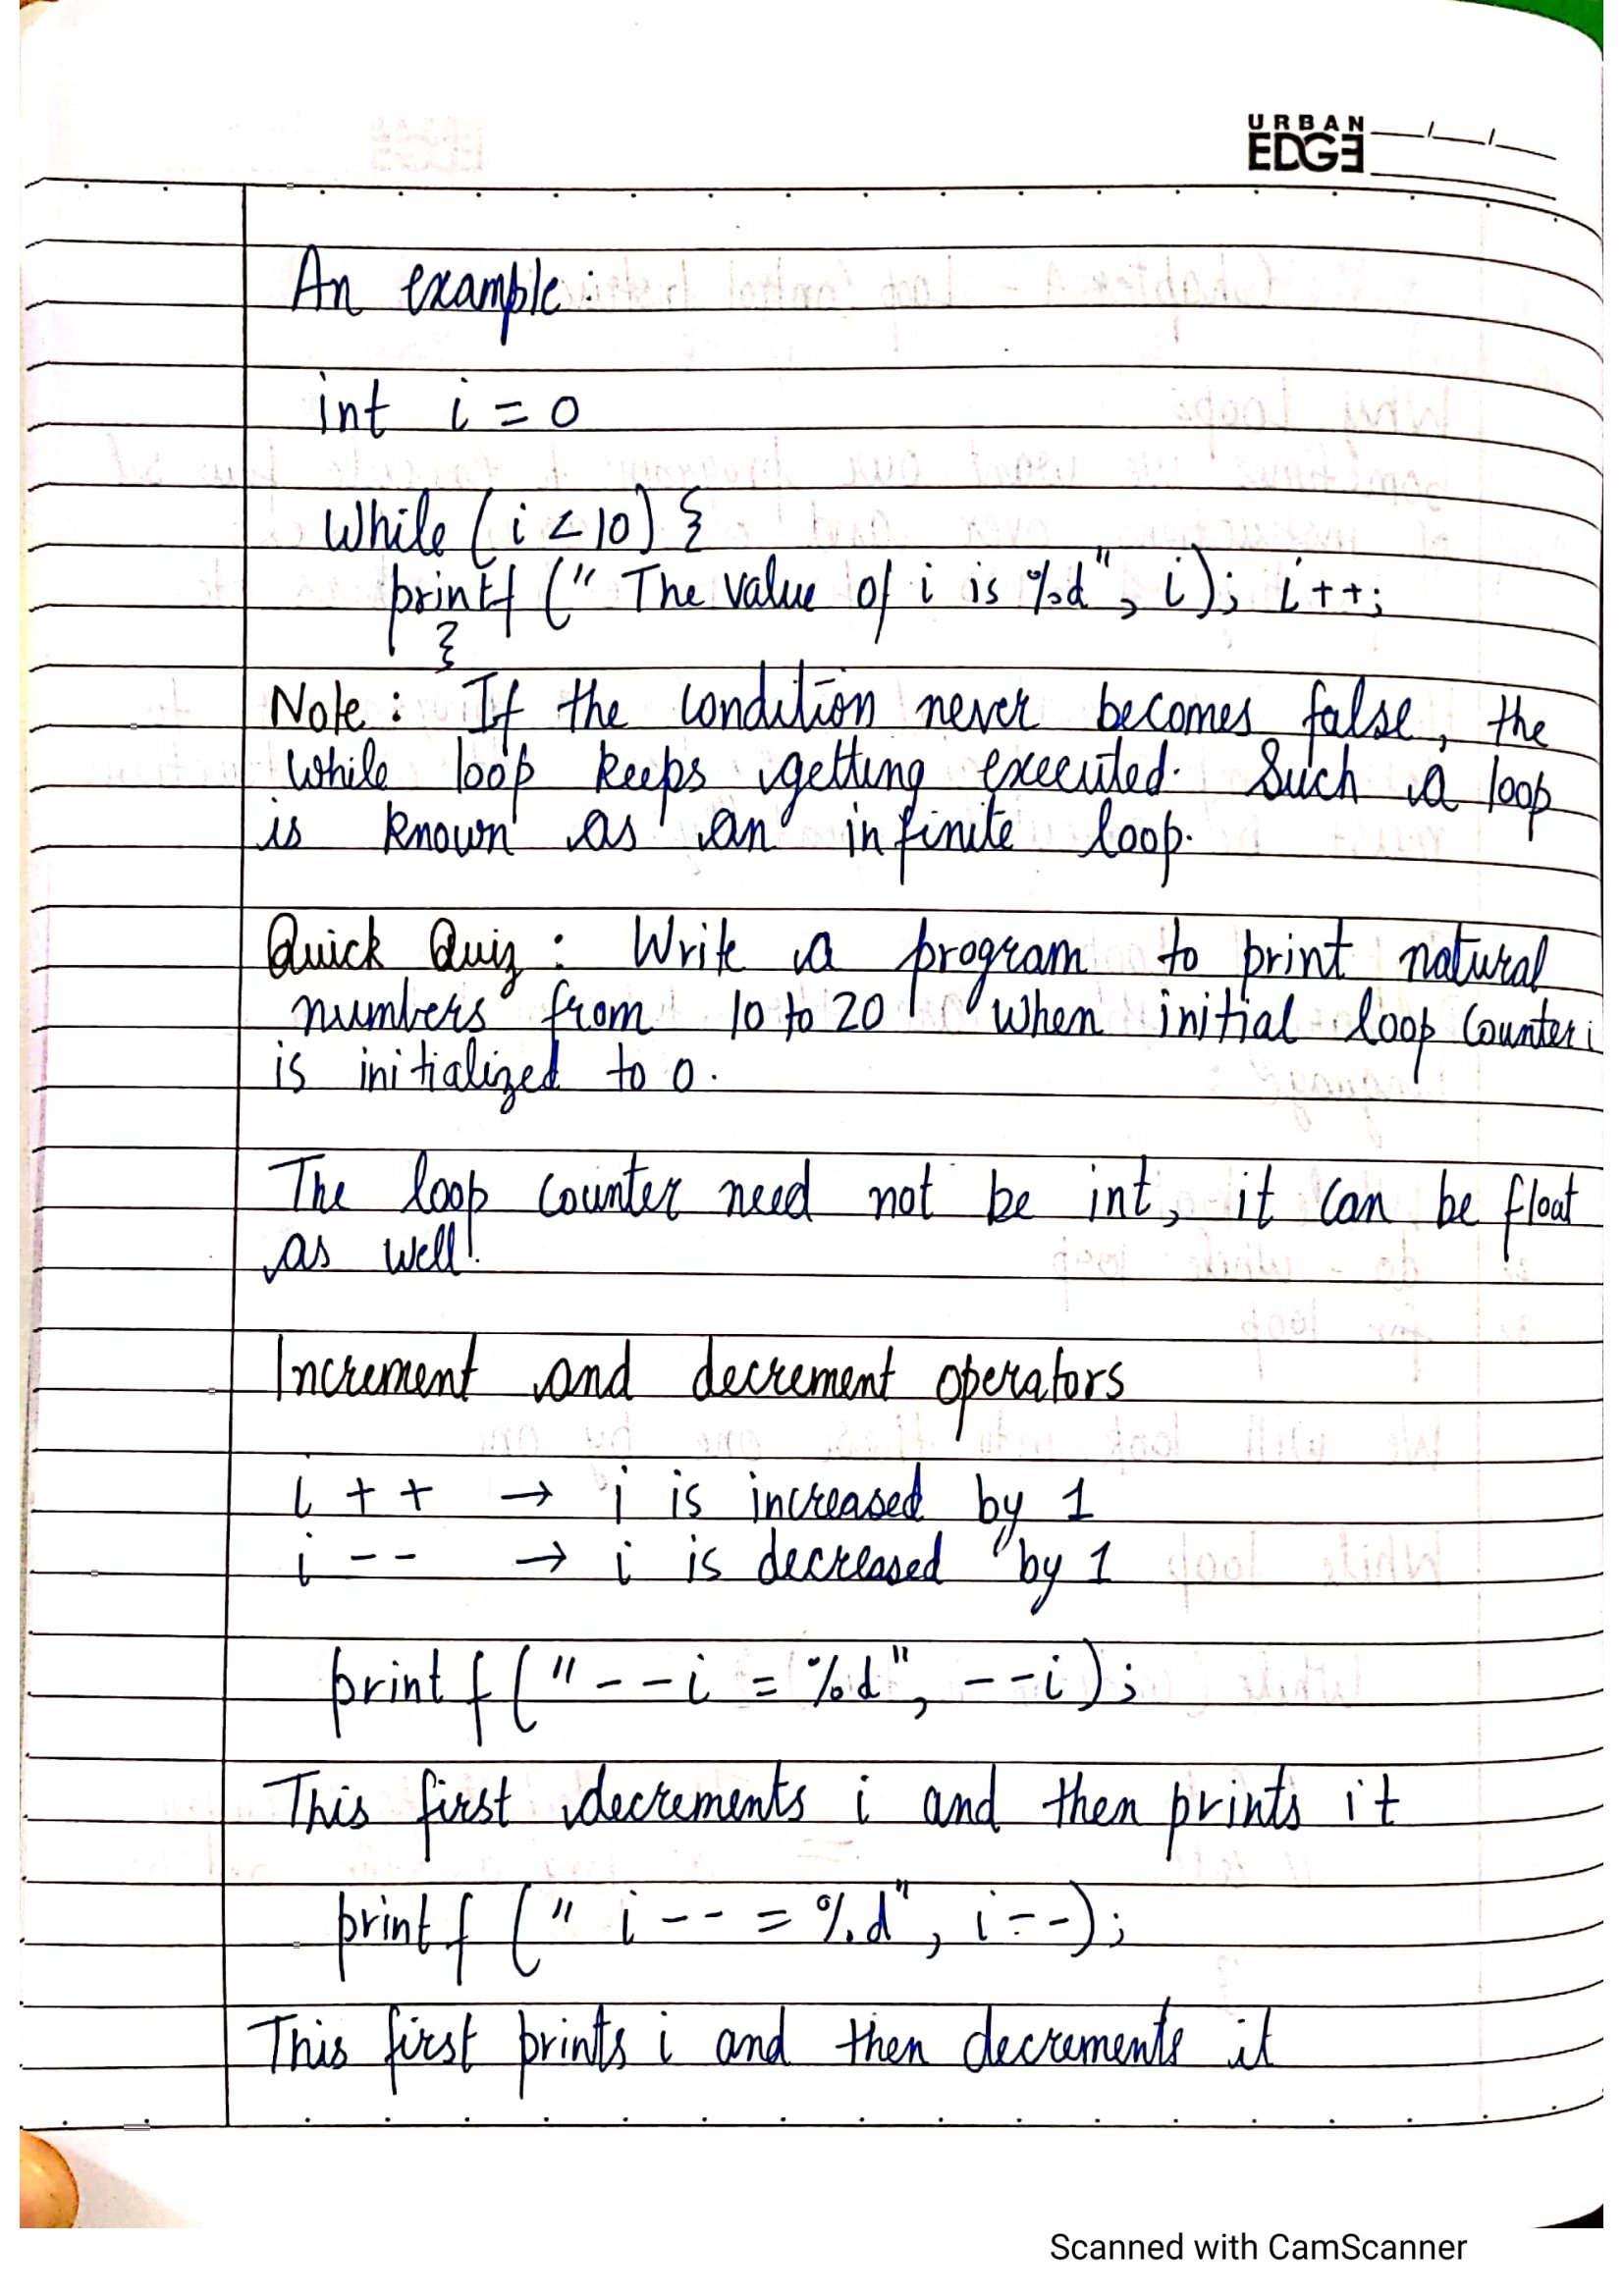 URBAN
EDGE
An example:
int i = 0
while (i < 10) {
printf (" The value of i is %d", i); i++;
}
Note : If the condition never becomes false, the
while loop keeps getting executed. Such a loop
is known as an infinite loop.
Quick Quiz : Write a program to print natural
numbers from 10 to 20 when initial loop counter i
is initialized to 0.
The loop counter need not be int, it can be float
as well!
Increment and decrement operators
i + + → i is increased by 1
i - - → i is decreased by 1
printf ("--i = %d", --i);
This first decrements i and then prints it
printf (" i-- = %d", i--);
This first prints i and then decrements it
Scanned with CamScanner